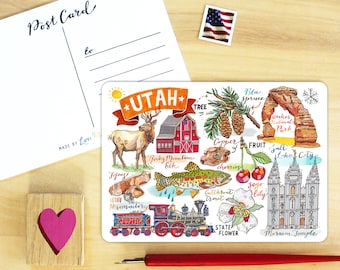 Post Card
to
MADE BY
UTAH
TREE
Blue
Spruce
Arches
National
Park
Rocky Mountain
Elk
Copper
FRUIT
Salt
Lake City
Cutthroat
Trout
STATE
FLOWER
Mormon Temple